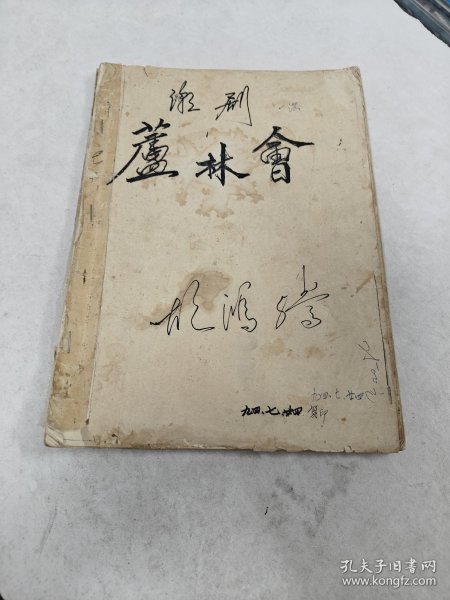 潮剧
蘆林會
九四.七.廿四
九四.七.廿四
复印
孔夫子旧书网
www.kongfz.com